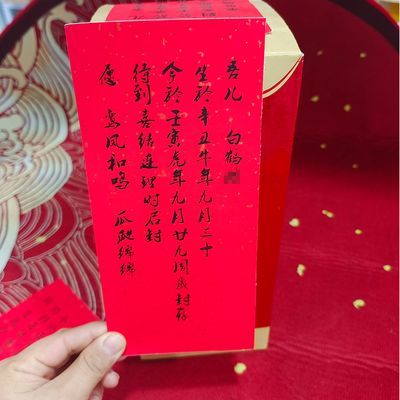 吾儿 白鹤
生於辛丑牛年九月三十
今於壬寅虎年九月廿九周岁封存
待到喜结连理时启封
愿 鸾凤和鸣 瓜瓞绵绵